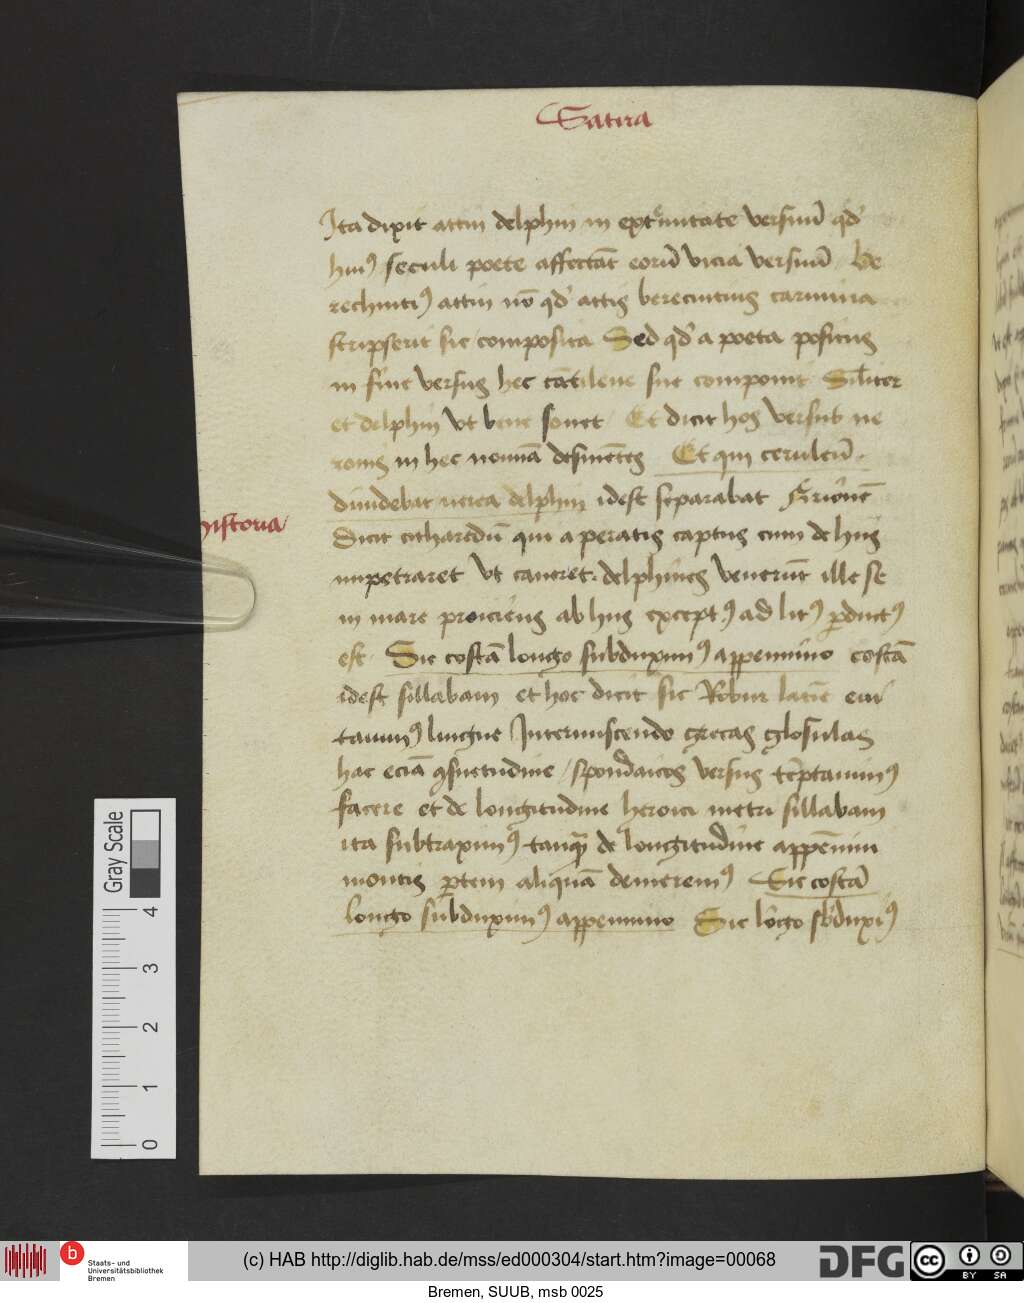 Satira
Ita dixit attin delphin in extͥmitate versuū qđ
huiꝰ seculi poete affectāt eorū vicia versuū. Be
rechintiꝰ attin nō qđ attis berecintius carmina
scripserit sic composita Sed qđ a poeta positus
in fine versus hec cātilene sue componit Silʼiter
et delphin vt bene sonet Et dicit hos versus ne
ronis in hec nomīa desinētes Et qui ceruleū.
dirimdebat nerea delphin idest separabat Arionē
historia
Dicit citharedū qui a peratis captus cum de hiis
impetraret vt caneret. delphines venerūt ille se
in mare proiciens ab hiis exceptꝰ ad litꝰ ꝑductꝰ
est. Sic costā longo subduximꝰ appennino costā
idest sillabam et hoc dicit sic Robur latiē eui
tauimꝰ lingue Intermiscendo grecas glosulas
hac eciā ꝯsuetudine / spondaicos versus tēptauimꝰ
facere et de longitudine heroici metri sillabam
ita subtraximꝰ tanqꝫ de longitudine appēnini
montis ꝑtem aliquā demeremꝰ Sic costā
longo subduximꝰ appennino Sic lōgo sb̄duxiꝰ
Gray Scale
4
3
2
1
0
b
Staats- und
Universitätsbibliothek
Bremen
(c) HAB http://diglib.hab.de/mss/ed000304/start.htm?image=00068
DFG
cc
BY SA
Bremen, SUUB, msb 0025